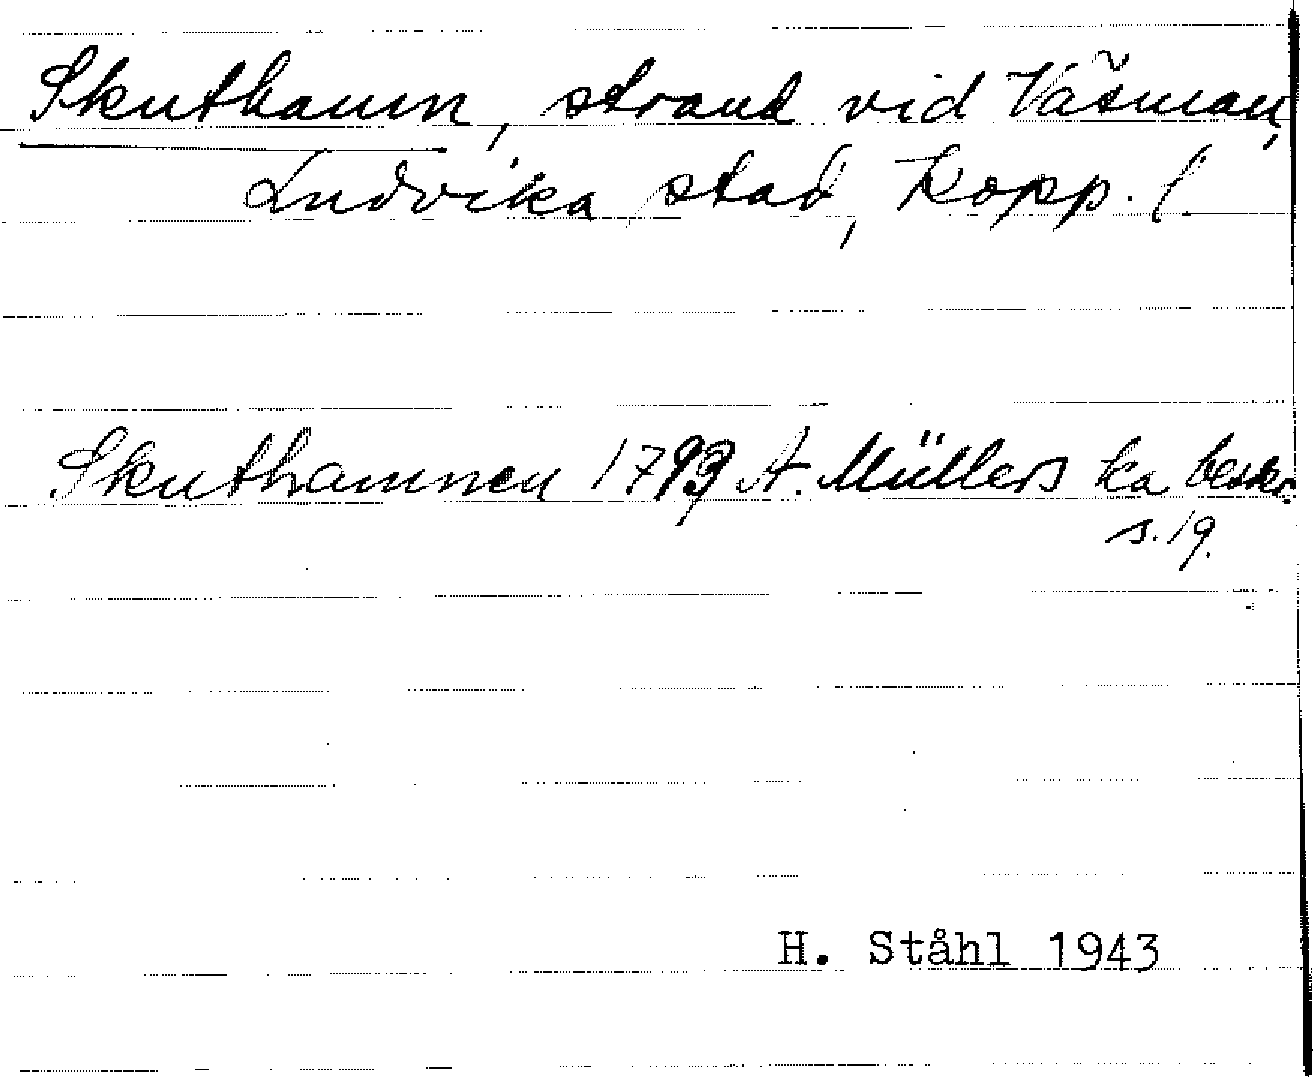 Skuthamn, strand vid Väsman,
Ludvika stad, Kopp. l.
Skuthamnen 1793 A. Müllers ka beskr.
s. 19.
H. Ståhl 1943